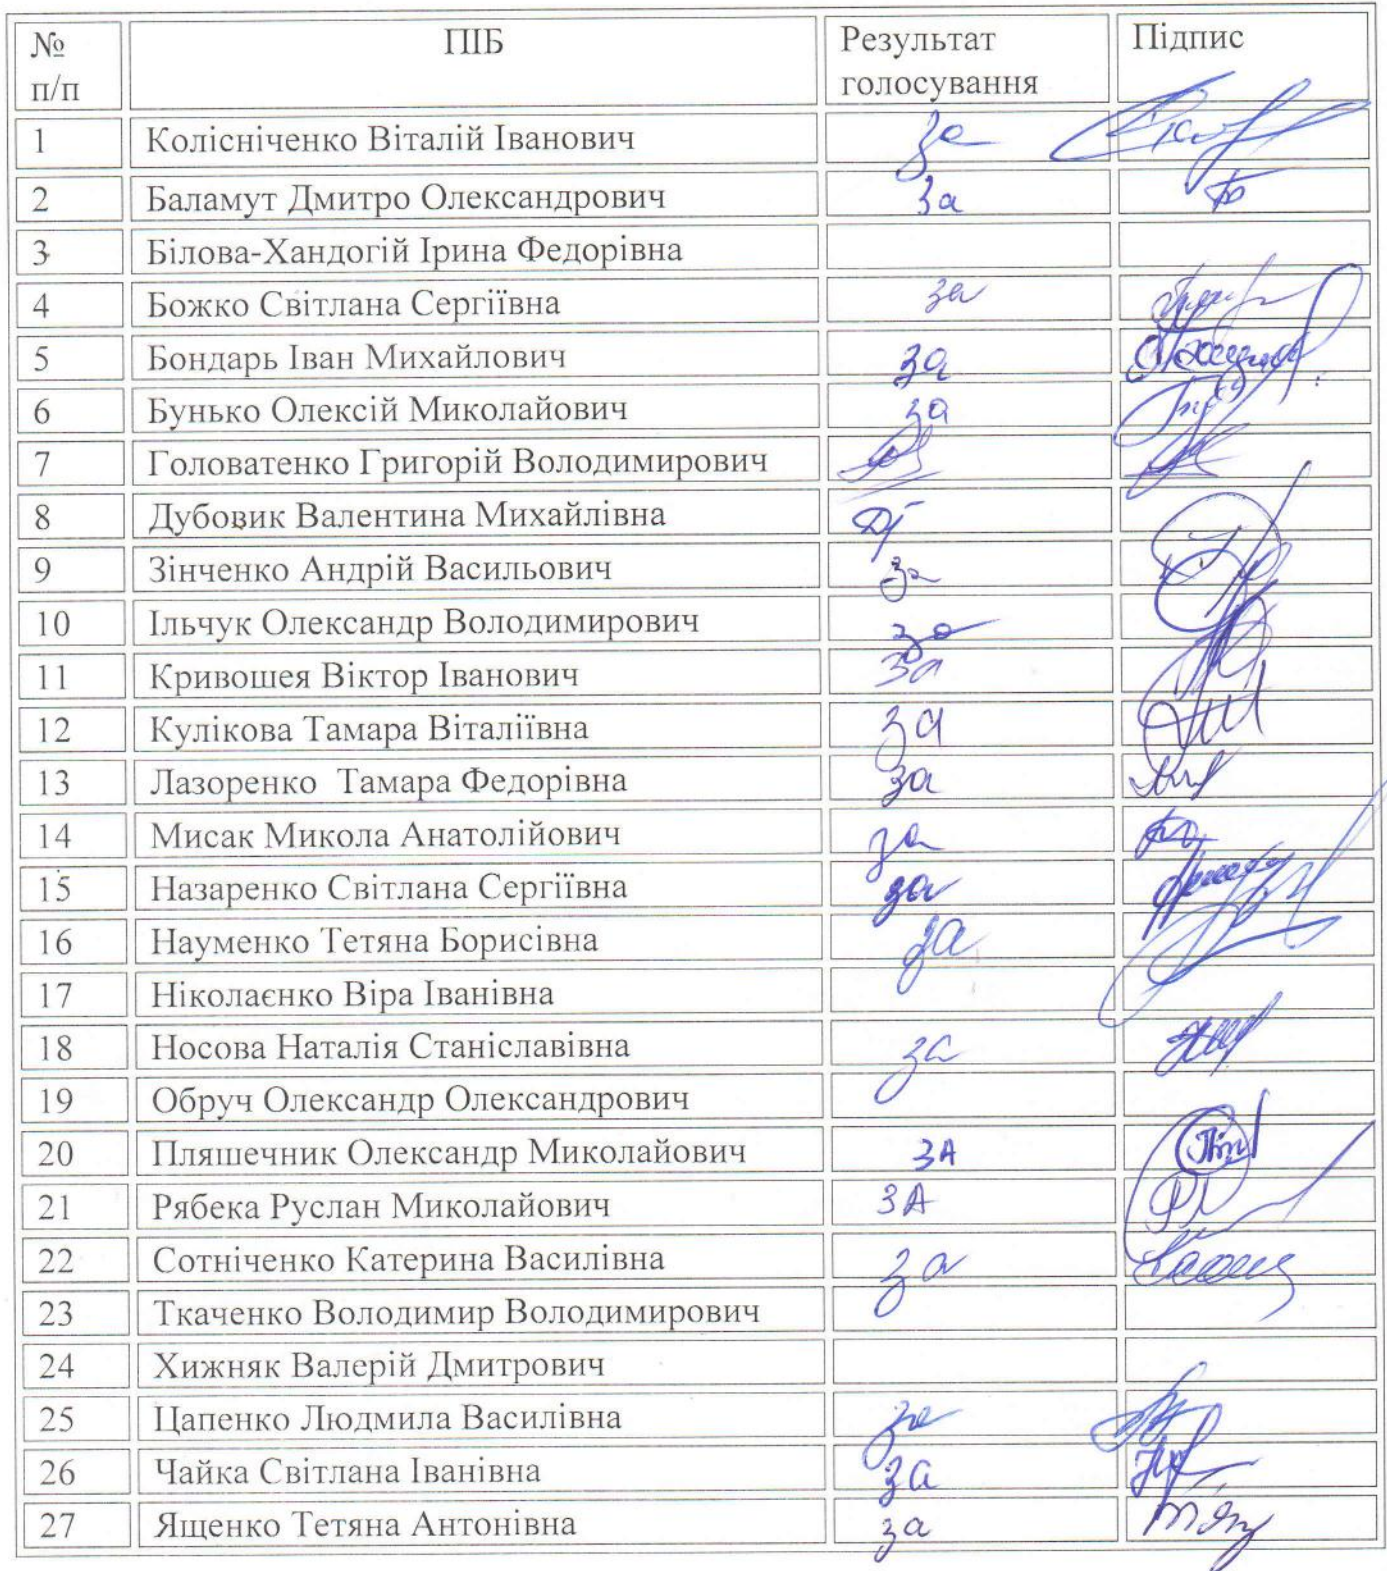 № ПІБ Результат Підпис
п/п голосування
1 Колісніченко Віталій Іванович за
2 Баламут Дмитро Олександрович за
3 Білова-Хандогій Ірина Федорівна
4 Божко Світлана Сергіївна за
5 Бондарь Іван Михайлович за
6 Бунько Олексій Миколайович за
7 Головатенко Григорій Володимирович
8 Дубовик Валентина Михайлівна
9 Зінченко Андрій Васильович за
10 Ільчук Олександр Володимирович за
11 Кривошея Віктор Іванович за
12 Кулікова Тамара Віталіївна за
13 Лазоренко Тамара Федорівна за
14 Мисак Микола Анатолійович за
15 Назаренко Світлана Сергіївна за
16 Науменко Тетяна Борисівна за
17 Ніколаєнко Віра Іванівна
18 Носова Наталія Станіславівна за
19 Обруч Олександр Олександрович
20 Пляшечник Олександр Миколайович ЗА
21 Рябека Руслан Миколайович ЗА
22 Сотніченко Катерина Василівна за
23 Ткаченко Володимир Володимирович
24 Хижняк Валерій Дмитрович
25 Цапенко Людмила Василівна за
26 Чайка Світлана Іванівна за
27 Ященко Тетяна Антонівна за